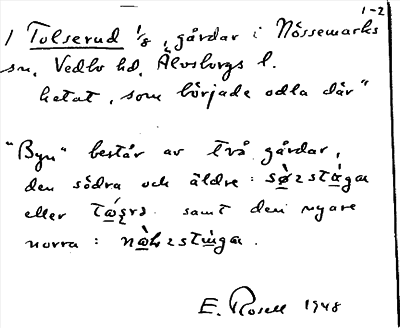 1-2
1 Tolserud 1/8, gårdar i Nössemarks
sn, Vedbo hd, Älvsborgs l.
hetat, som började odla där"
"Byn" består av två gårdar,
den södra och äldre: sø̀ꝛstúga
eller samt den nyare
norra:
E. Rosell 1948